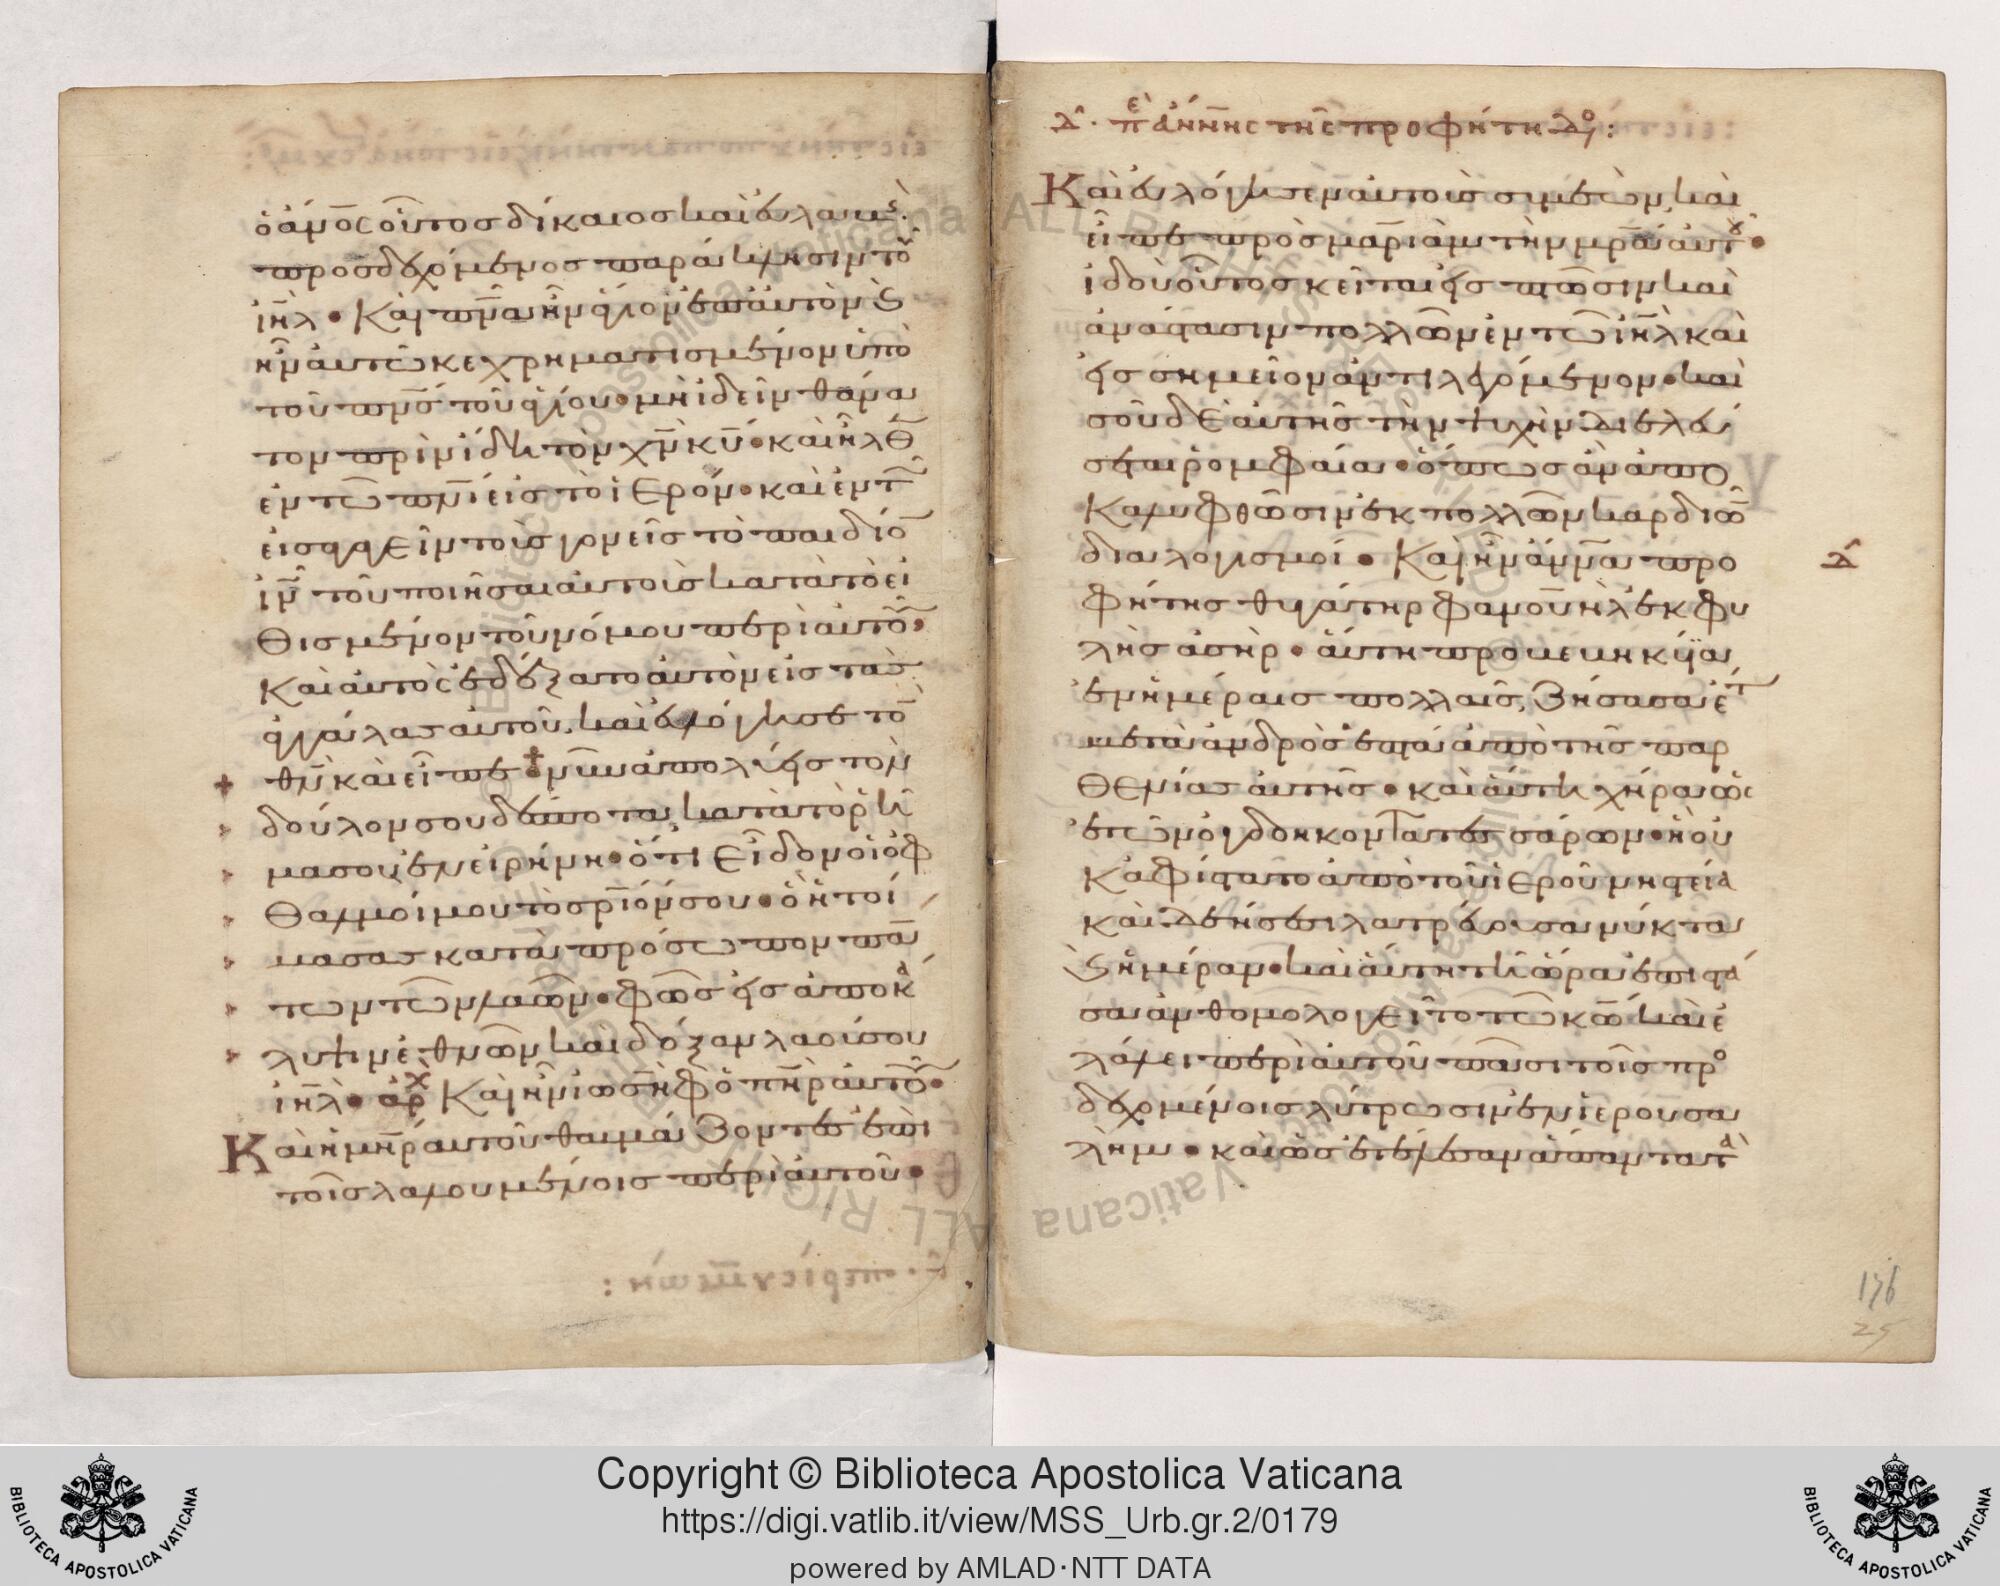 ὁ ἀν̅ο̅ς οὗτος δίκαιος καὶ εὐλαβὴς·
προσδεχόμενος παράκλησιν τοῦ
ι̅η̅λ̅· Καὶ π̅ν̅α̅ ἦν ἅγιον ἐπ' αὐτὸν καὶ
ἦν αὐτῶ κεχρηματισμένον ὑπὸ
τοῦ π̅ν̅ς̅ τοῦ ἁγίου· μὴ ἰδεῖν θάνα
τον πρὶν ἴδη τὸν χ̅ν̅ κ̅υ̅· καὶ ἦλθεν
ἐν τῶ π̅ν̅ι̅ εἰς τὸ ἱερόν· καὶ ἐν τῶ
εἰσαγαγεῖν τοὺς γονεῖς τὸ παιδίον
ι̅ν̅ τοῦ ποιῆσαι αὐτοὺς κατὰ τὸ εἰ
θισμένον τοῦ νόμου περὶ αὐτοῦ·
Καὶ αὐτὸς ἐδέξατο αὐτὸν εἰς τὰς
ἀγκάλας αὐτοῦ, καὶ εὐλόγησε τὸν
θ̅ν̅ καὶ εἶπε· νῦν ἀπολύεις τὸν
δοῦλον σου δέσποτα, κατὰ τὸ ῥῆ
μα σου ἐν εἰρήνη· ὅτι εἶδον οἱ ὀφ
θαλμοί μου τὸ σ̅ρ̅ιόν σου· ὃ ἡτοί
μασας κατὰ πρόσωπον πάν
των τῶν λαῶν· φῶς εἰς ἀποκά
λυψιν ἐθνῶν καὶ δόξαν λαοῦ σου
ι̅η̅λ̅· ἀρχ Καὶ ἦν ἰωσὴφ ὁ π̅η̅ρ̅ αὐτοῦ·
Καὶ ἡ μ̅η̅ρ̅ αὐτοῦ θαυμάζοντες ἐπὶ
τοῖς λαλουμένοις περὶ αὐτοῦ·
δ· πε ἄννης τῆς προφήτιδο:
Καὶ εὐλόγησεν αὐτοὺς συμεὼν, καὶ
εἶπε πρὸς μαριὰμ τὴν μ̅ρ̅α̅ αὐτοῦ·
ἰδοὺ οὗτος κεῖται εἰς πτῶσιν καὶ
ἀνάστασιν πολλῶν ἐν τῶ ι̅η̅λ̅ καὶ
εἰς σημεῖον ἀντιλεγόμενον· καὶ
σοῦ δὲ αὐτῆς τὴν ψυχὴν διελεύ
σεται ῥομφαία· ὅπως ἂν ἀπο
καλυφθῶσιν ἐκ πολλῶν καρδιῶν
διαλογισμοί· Καὶ ἦν ἄννα προ
δ
φῆτης θυγάτηρ φανουὴλ ἐκ φυ
λῆς ἀσήρ· αὕτη προβεβηκυῖα
ἐν ἡμέραις πολλαῖς, ζήσασα ἔτη
μετὰ ἀνδρὸς ἑπτὰ ἀπὸ τῆς παρ
θενίας αὐτῆς· καὶ αὐτὴ χήρα ὡς
ἐτῶν ὀγδοηκοντατεσσάρων· ἣ οὐκ
ἀφίστατο ἀπὸ τοῦ ἱεροῦ νηστεία
καὶ δεήσει λατρεύουσα νύκτα
καὶ ἡμέραν· καὶ αὕτη τῆ ὥρα ἐπιστᾶ
σα ἀνθομολογεῖτο τῶ κ̅ω̅ καὶ ἐ
λάλει περὶ αὐτοῦ πᾶσι τοῖς προσ
δεχομένοις λύτρωσιν ἐν ἱερουσα
λήμ· καὶ ὡς ἐτέλεσαν ἅπαντα τὰ
176
25
Copyright © Biblioteca Apostolica Vaticana
https://digi.vatlib.it/view/MSS_Urb.gr.2/0179
powered by AMLAD·NTT DATA
BIBLIOTECA APOSTOLICA VATICANA
BIBLIOTECA APOSTOLICA VATICANA